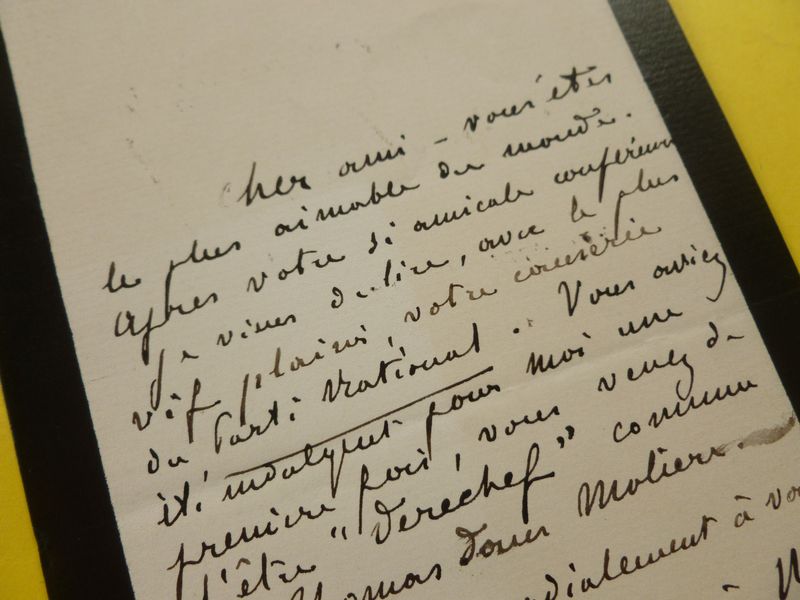 Cher ami - vous êtes
le plus aimable du monde.
Après votre si amicale conférence
je viens de lire, avec le plus
vif plaisir, votre causerie
du Parti National. Vous aviez
été indulgent pour moi une
première fois, vous venez de
l'être "derechef" comme
Thomas dans Molière.
cordialement à vo